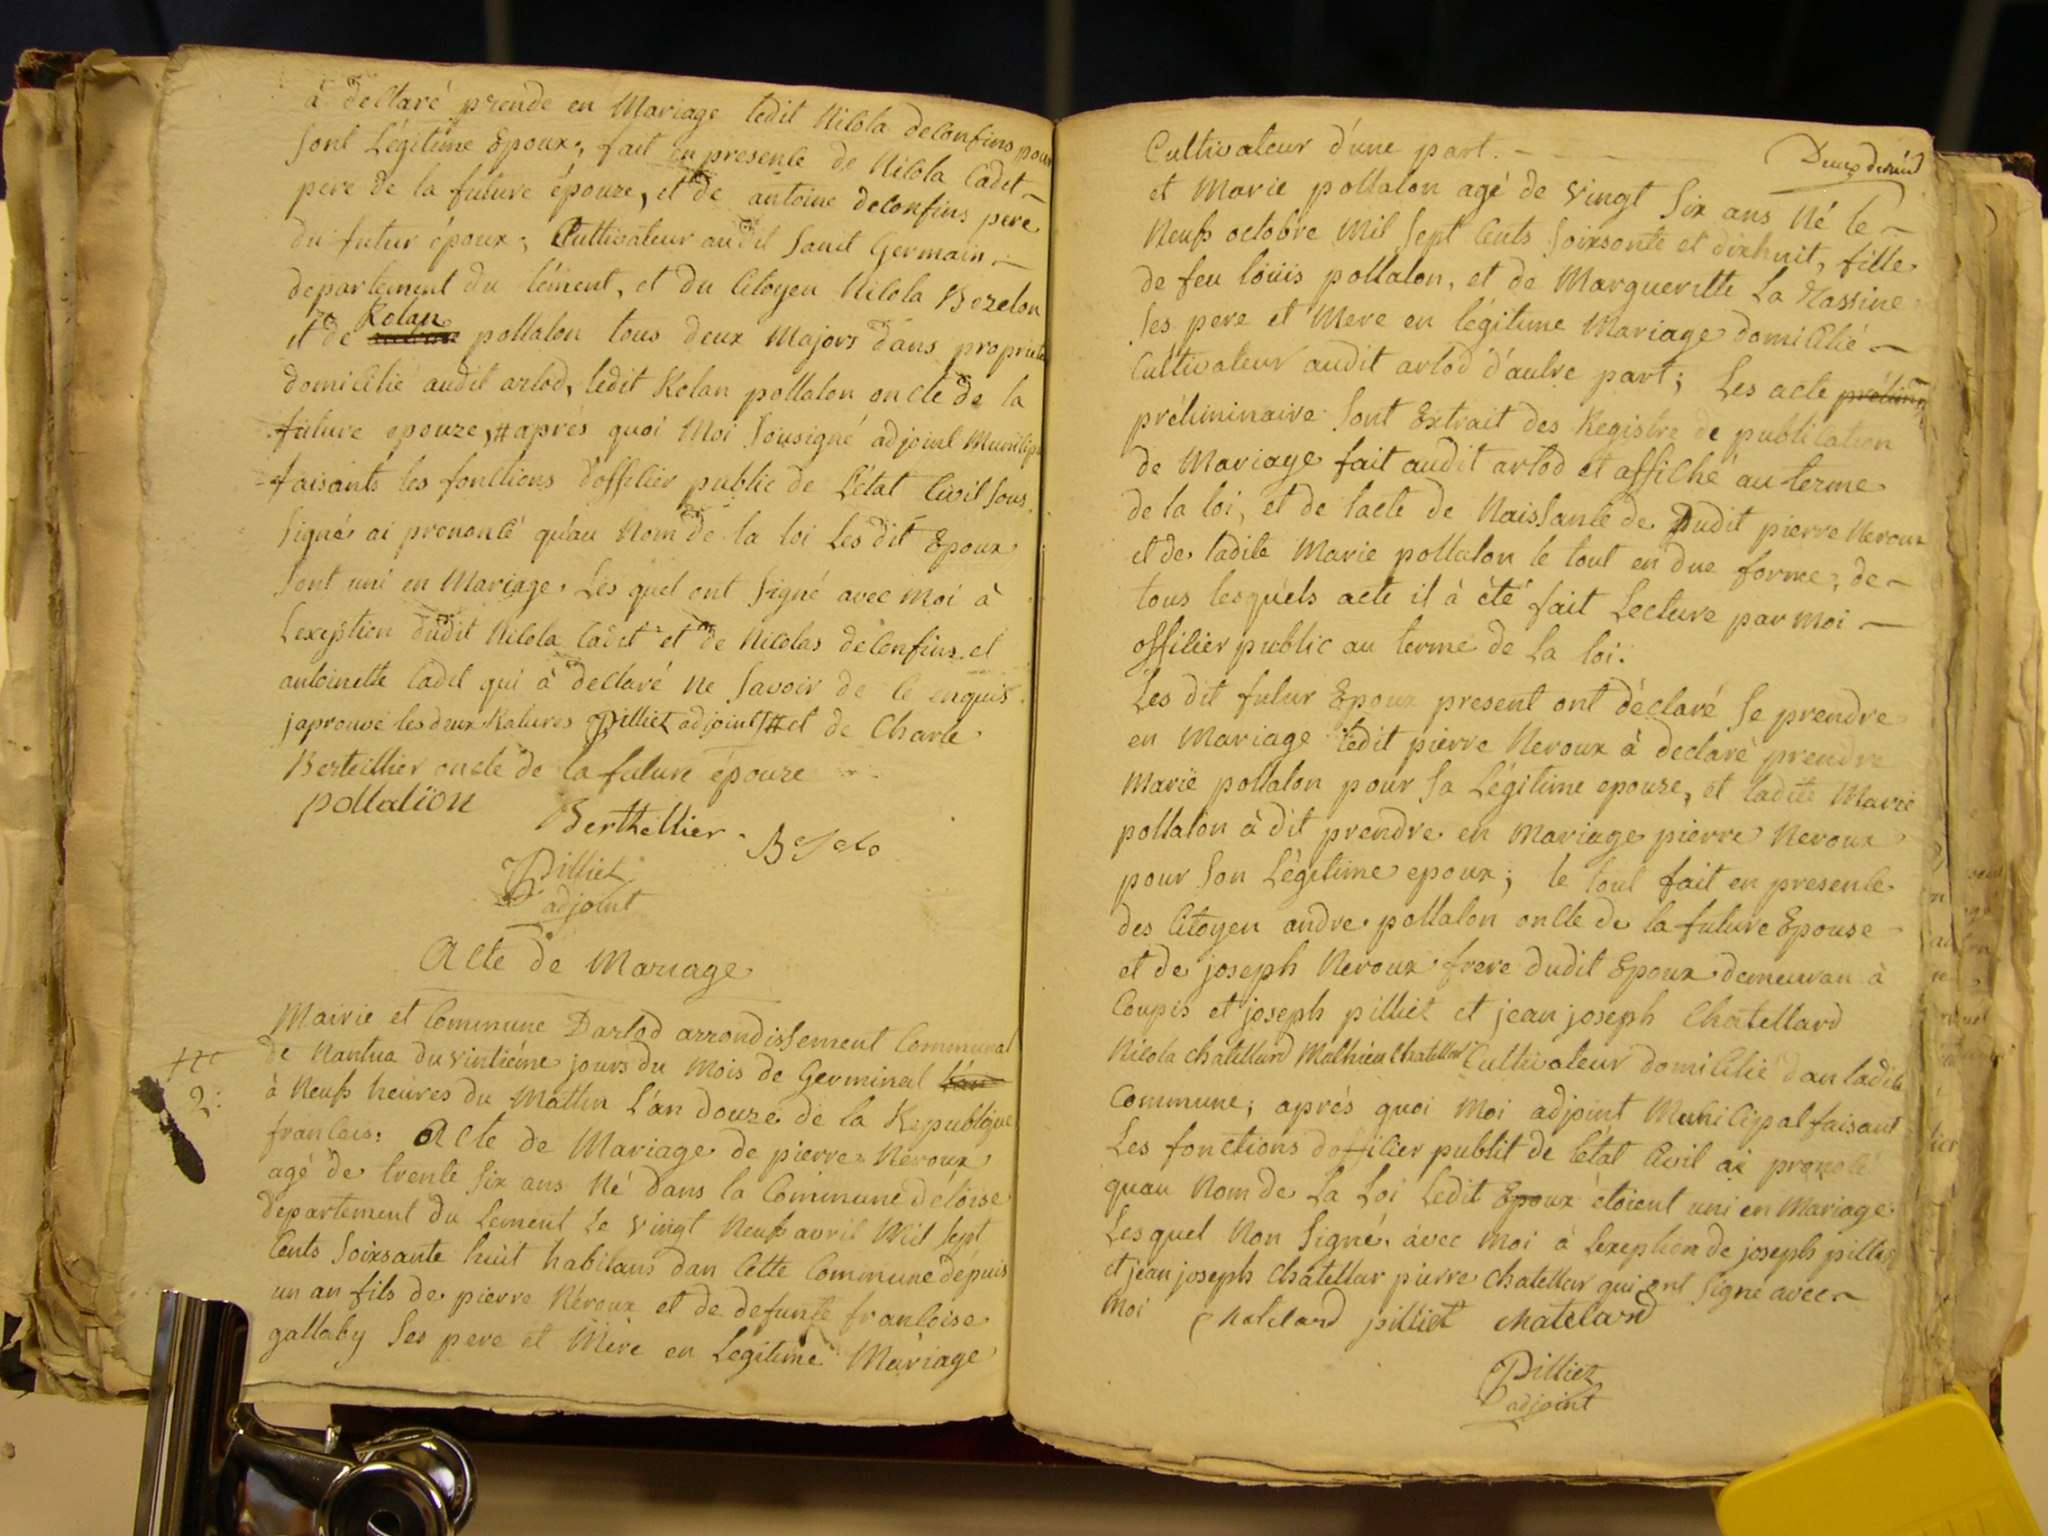 à declaré prende en Mariage ledit Nicola deconfins pour
sont Légitime Epoux, fait en presence de Nicola Cadet
pere de la future épouze, et de antoine deconfins pere
du futur époux, Cultivateur audit Sanit Germain
departement du lément, et du Citoyen Nicola Bezelon
Kolan
et de pollalon tous deux Majors dans propriete
domicilié audit arlod, ledit Kolan pollalon oncle de la
future epouze, # aprés quoi Moi Sousigné adjoint Municip
faisants les fonctions d'officier public de L'état Civil Sous
Signé ai prenoncé qu'au Nom de la loi Les dit Epoux
Sont uni en Mariage. Les quel ont Signé avec moi à
Lexeption dudit Nicola Cadet et de Nicolas deconfins et
antoinette Cadet qui à declaré ne Savoir de ce enquis
japrouve les deux Ratures Pilliet adjoint # et de Charle
Berteillier oncle de la future épouze
pollation
Berthellier
Pilliet
adjoint
Acte de Mariage
Mairie et Commune Darlod arrondissement Communal
de Nantua du vintiéme jours du Mois de Germinal l'an
2.
à Neufs heures du Mattin L'an douze de la Republique
francais. Acte de Mariage de pierre Neroux
agé de trente Six ans Né dans la Commune déloise
departement du Lement Le vingt Neufs avril Mil Sept
Cents Soixsante huit habitans dan Cette Commune depuis
un an fils de pierre Néroux et de defunte francoise
gallaby Ses pere et Mére en Légitime Mariage
Cultivateur d'une part.
et Marie pollalon agé de vingt Six ans Né le
Neufs octobre Mil Sept Cents Soixsonte et dixhuit, fille
de feu loüis pollalon, et de Margueritte La Rassine
Ses pere et Mere en légitime Mariage domicilié
Cultivateur audit arlod d'autre part; Les acte prélimin
préliminaire Sont Extrait des Registre de publication
de Mariage fait audit arlod et affiché au terme
de la loi, et de lacte de Naissance de Dudit pierre Neroux
et de ladite Marie pollalon le tout en due forme; de
tous lesquels acte il à été fait Lecture par Moi
officier public au terme de La loi.
Les dit futur Epoux present ont déclaré Se prendre
en Mariage ledit pierre Neroux à declaré prendre
Marie pollalon pour Sa Légitime epouze, et ladite Marie
pollalon à dit prendre en Mariage pierre Neroux
pour Son Légitime epoux; le tout fait en presence
des Citoyen andre pollalon oncle de la future Epouse
et de joseph Neroux frere dudit Epoux demeuran à
Coupis et joseph pilliet et jean joseph Chatellard
Nicola chatellard Mathieu Chatellar Cultivateur domicilié dan ladite
Commune; aprés quoi Moi adjoint Municipal faisant
Les fonctions d'officier publit de l'état Civil ai prononcé
quau Nom de La Loi Ledit Epoux étoient uni en Mariage
Les quel Non Signé avec Moi à Lexeption de joseph pilliet
et jean joseph Chatellar pierre Chatellar qui ont Signé avec
Moi Chatelard pilliet chatelard
Pilliez
adjoint